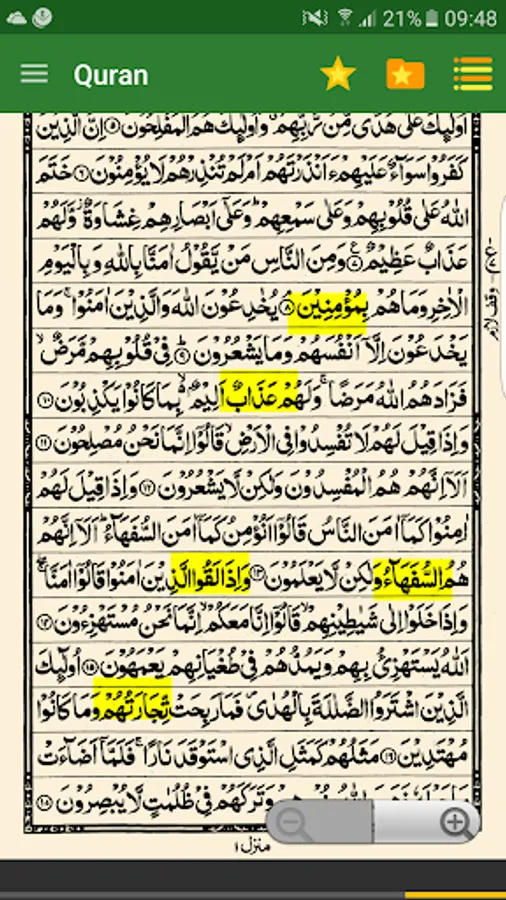 21% 09:48
Quran
اُولٰٓئِكَ عَلٰى هُدًى مِّنْ رَّبِّهِمْ ۙ وَاُولٰٓئِكَ هُمُ الْمُفْلِحُوْنَ ۝۵ اِنَّ الَّذِيْنَ
كَفَرُوْا سَوَآءٌ عَلَيْهِمْ ءَاَنْذَرْتَهُمْ اَمْ لَمْ تُنْذِرْهُمْ لَا يُؤْمِنُوْنَ ۝۶ خَتَمَ
اللّٰهُ عَلٰى قُلُوْبِهِمْ وَعَلٰى سَمْعِهِمْ ؕ وَعَلٰٓى اَبْصَارِهِمْ غِشَاوَةٌ ؗ وَّلَهُمْ
عَذَابٌ عَظِيْمٌ ۝۷ وَمِنَ النَّاسِ مَنْ يَّقُوْلُ اٰمَنَّا بِاللّٰهِ وَبِالْيَوْمِ
الْاٰخِرِ وَمَا هُمْ بِمُؤْمِنِيْنَ ۝۸ يُخٰدِعُوْنَ اللّٰهَ وَالَّذِيْنَ اٰمَنُوْا ۚ وَمَا
يَخْدَعُوْنَ اِلَّآ اَنْفُسَهُمْ وَمَا يَشْعُرُوْنَ ۝۹ فِيْ قُلُوْبِهِمْ مَّرَضٌ ۙ
فَزَادَهُمُ اللّٰهُ مَرَضًا ۚ وَلَهُمْ عَذَابٌ اَلِيْمٌ ۙ بِمَا كَانُوْا يَكْذِبُوْنَ ۝۱۰
وَاِذَا قِيْلَ لَهُمْ لَا تُفْسِدُوْا فِى الْاَرْضِ ۙ قَالُوْٓا اِنَّمَا نَحْنُ مُصْلِحُوْنَ ۝۱۱
اَلَآ اِنَّهُمْ هُمُ الْمُفْسِدُوْنَ وَلٰكِنْ لَّا يَشْعُرُوْنَ ۝۱۲ وَاِذَا قِيْلَ لَهُمْ
اٰمِنُوْا كَمَآ اٰمَنَ النَّاسُ قَالُوْٓا اَنُؤْمِنُ كَمَآ اٰمَنَ السُّفَهَآءُ ؕ اَلَآ اِنَّهُمْ
هُمُ السُّفَهَآءُ وَلٰكِنْ لَّا يَعْلَمُوْنَ ۝۱۳ وَاِذَا لَقُوا الَّذِيْنَ اٰمَنُوْا قَالُوْٓا اٰمَنَّا ۚ
وَاِذَا خَلَوْا اِلٰى شَيٰطِيْنِهِمْ ۙ قَالُوْٓا اِنَّا مَعَكُمْ ۙ اِنَّمَا نَحْنُ مُسْتَهْزِءُوْنَ ۝۱۴
اَللّٰهُ يَسْتَهْزِئُ بِهِمْ وَيَمُدُّهُمْ فِيْ طُغْيَانِهِمْ يَعْمَهُوْنَ ۝۱۵ اُولٰٓئِكَ
الَّذِيْنَ اشْتَرَوُا الضَّلٰلَةَ بِالْهُدٰى ۪ فَمَا رَبِحَتْ تِّجَارَتُهُمْ وَمَا كَانُوْا
مُهْتَدِيْنَ ۝۱۶ مَثَلُهُمْ كَمَثَلِ الَّذِى اسْتَوْقَدَ نَارًا ۚ فَلَمَّآ اَضَآءَتْ
وَتَرَكَهُمْ فِيْ ظُلُمٰتٍ لَّا يُبْصِرُوْنَ ۝۱۷
وقف لازم
منزل ۱